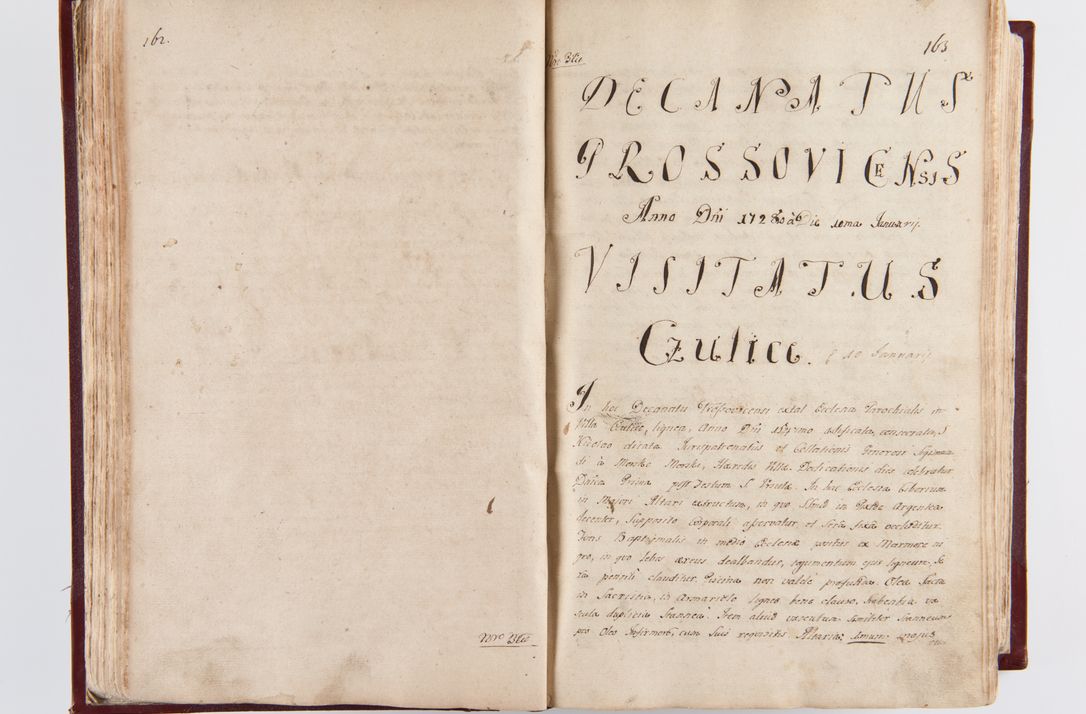 162.
163
DECANATUS
PROSSOVICENSIS
Anno Dni 1728 a Die 10ma Januarij.
VISITATUS
Czulice.
10 Januarij.
In hoc Decanatu Prossovicensi extat Ecclesia Parochialis in
Villa Czulice, lignea, Anno Dni adificata, consecrata, S
Nicolao dicata. Jurispatronatûs et Collationis Generosi Sigismun
di à Morsko Morski, Hæredis Villæ. Dedicationis dies celebratur
Dnica Prima post Festum S. In hac Ecclesia Ciborium
in Majori Altari extructum, in quo SSmũ in Pixide Argentea
decenter, supposito Corporali asservatur, et sera fixa occluditur.
Fons Baptismalis in medio Ecclesiæ positus ex Marmore ni
gro, in quo lebes æreus dealbandus, tegumentum ejus ligneum, Se
ra pensili clauditur, Piscina non valde profunda. Olea Sacra
in Sacristia, in Armariolo ligneo bene clauso, habentia va
scula duplicia Stannea. Item aliud vasculum similiter Stanneum
pro Oleo Infirmorũ, cum suis requisitis. Altaria: primum majus